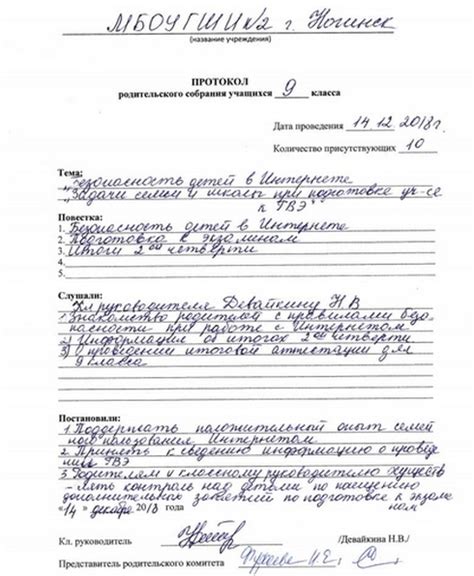 МБОУ ГШИ №2 г. Ногинск
(название учреждения)
ПРОТОКОЛ
родительского собрания учащихся 9 класса
Дата проведения 14.12.2018г.
Количество присутствующих 10
Тема:
"Безопасность детей в Интернете
"Задачи семьи и школы при подготовке уч-ся
к ГВЭ"
Повестка:
1. Безопасность детей в Интернете
2. Подготовка к экзаменам
3. Итоги 2ой четверти
4.
5.
Слушали:
Кл руководителя Девайкину Н.В
1. Знакомство родителей с правилами безо-
пасности при работе с Интернетом
2) Информация об итогах 2ой четверти
3) О проведении итоговой аттестации для
9 класса
Постановили:
1. Поддержать положительный опыт семей
ного пользования Интернетом
2. Принять к сведению информацию о проведе
нии ГВЭ
3. Родителям и классному руководителю осуществ
- лять контроль над детьми по посещению
дополнительных занятий по подготовке к экзаме
нам
"14" декабря 2018 года
Кл. руководитель /Девайкина Н.В./
Представитель родительского комитета